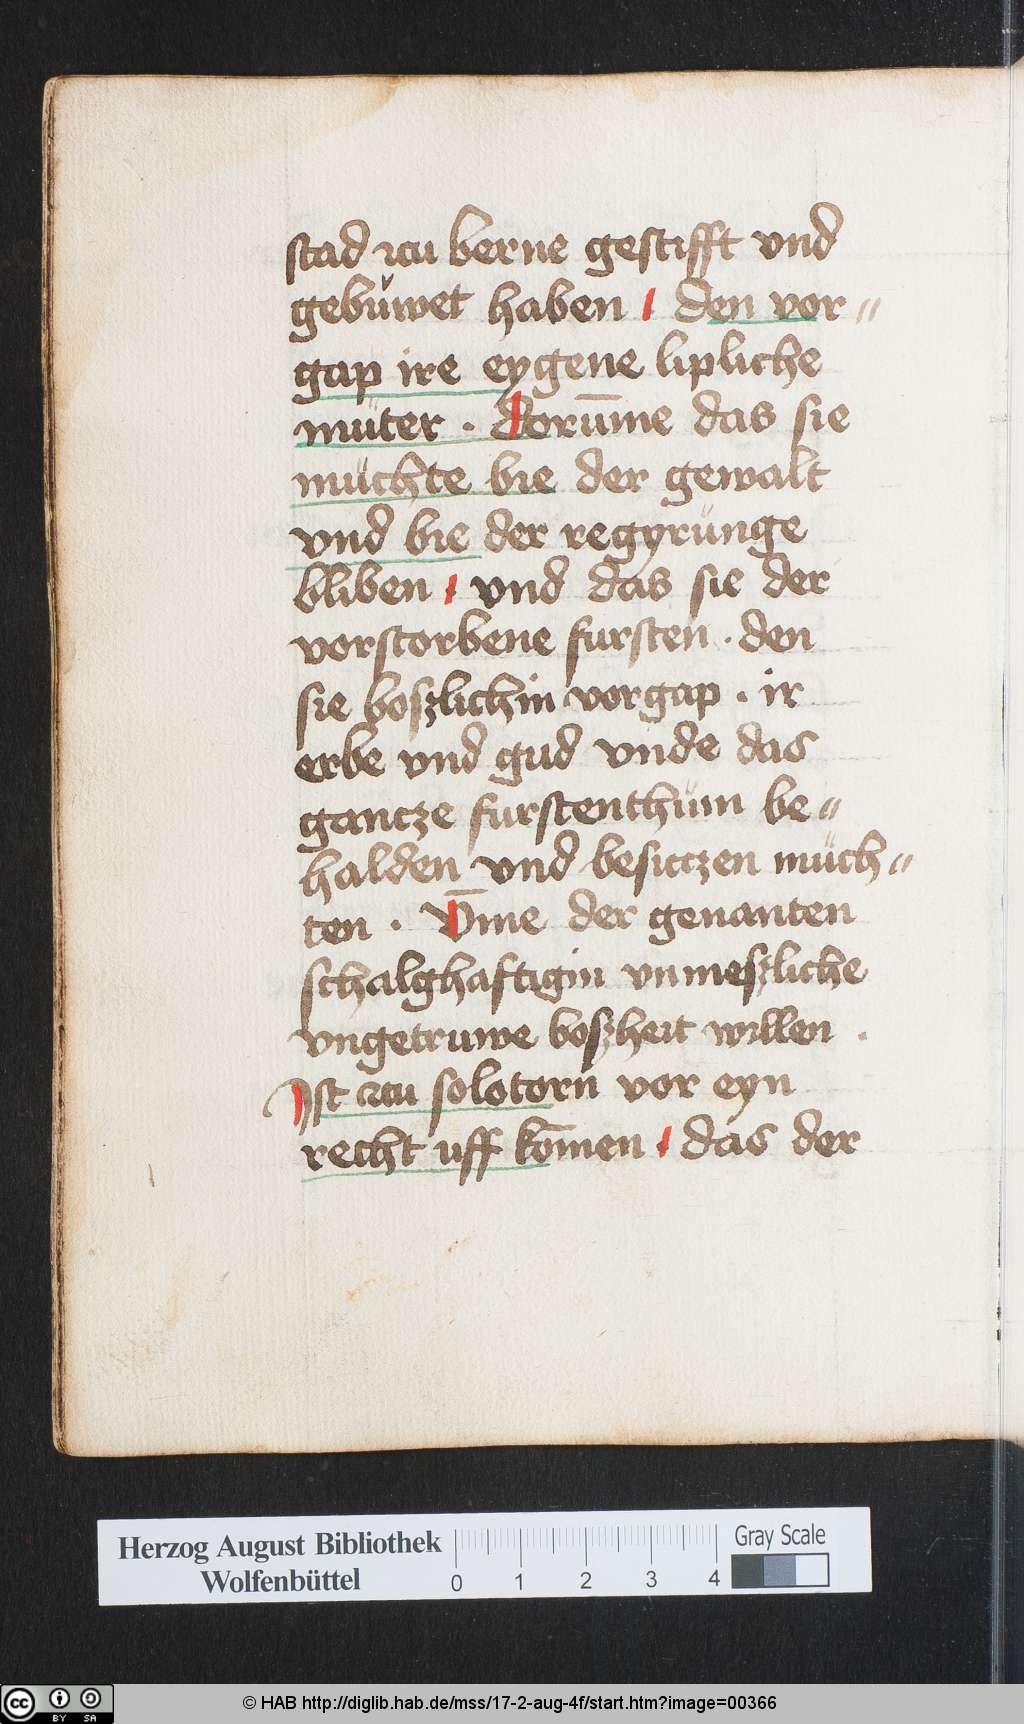 stad zcu berne gestifft vnd
gebüwet haben den vor〃
gap ire eygene lipliche
müter · dorum̄e das sie
müchte bie der gewalt
vnd bie der regyrünge
bliben vnd das sie der
vorstorbene fursten · den
sie boszlichin vorgap · ir
erbe vnd gud vnde das
gancze furstenthüm be〃
halden vnd besiczen müch〃
ten · Vm̄e der genanten
schalghaftigin vnmeszliche
vngetruwe boszheit willen ·
Ist zcu solotorn vor eyn
recht uff kom̄en das der
Herzog August Bibliothek
Wolfenbüttel
0 1 2 3 4
Gray Scale
cc BY SA
© HAB http://diglib.hab.de/mss/17-2-aug-4f/start.htm?image=00366